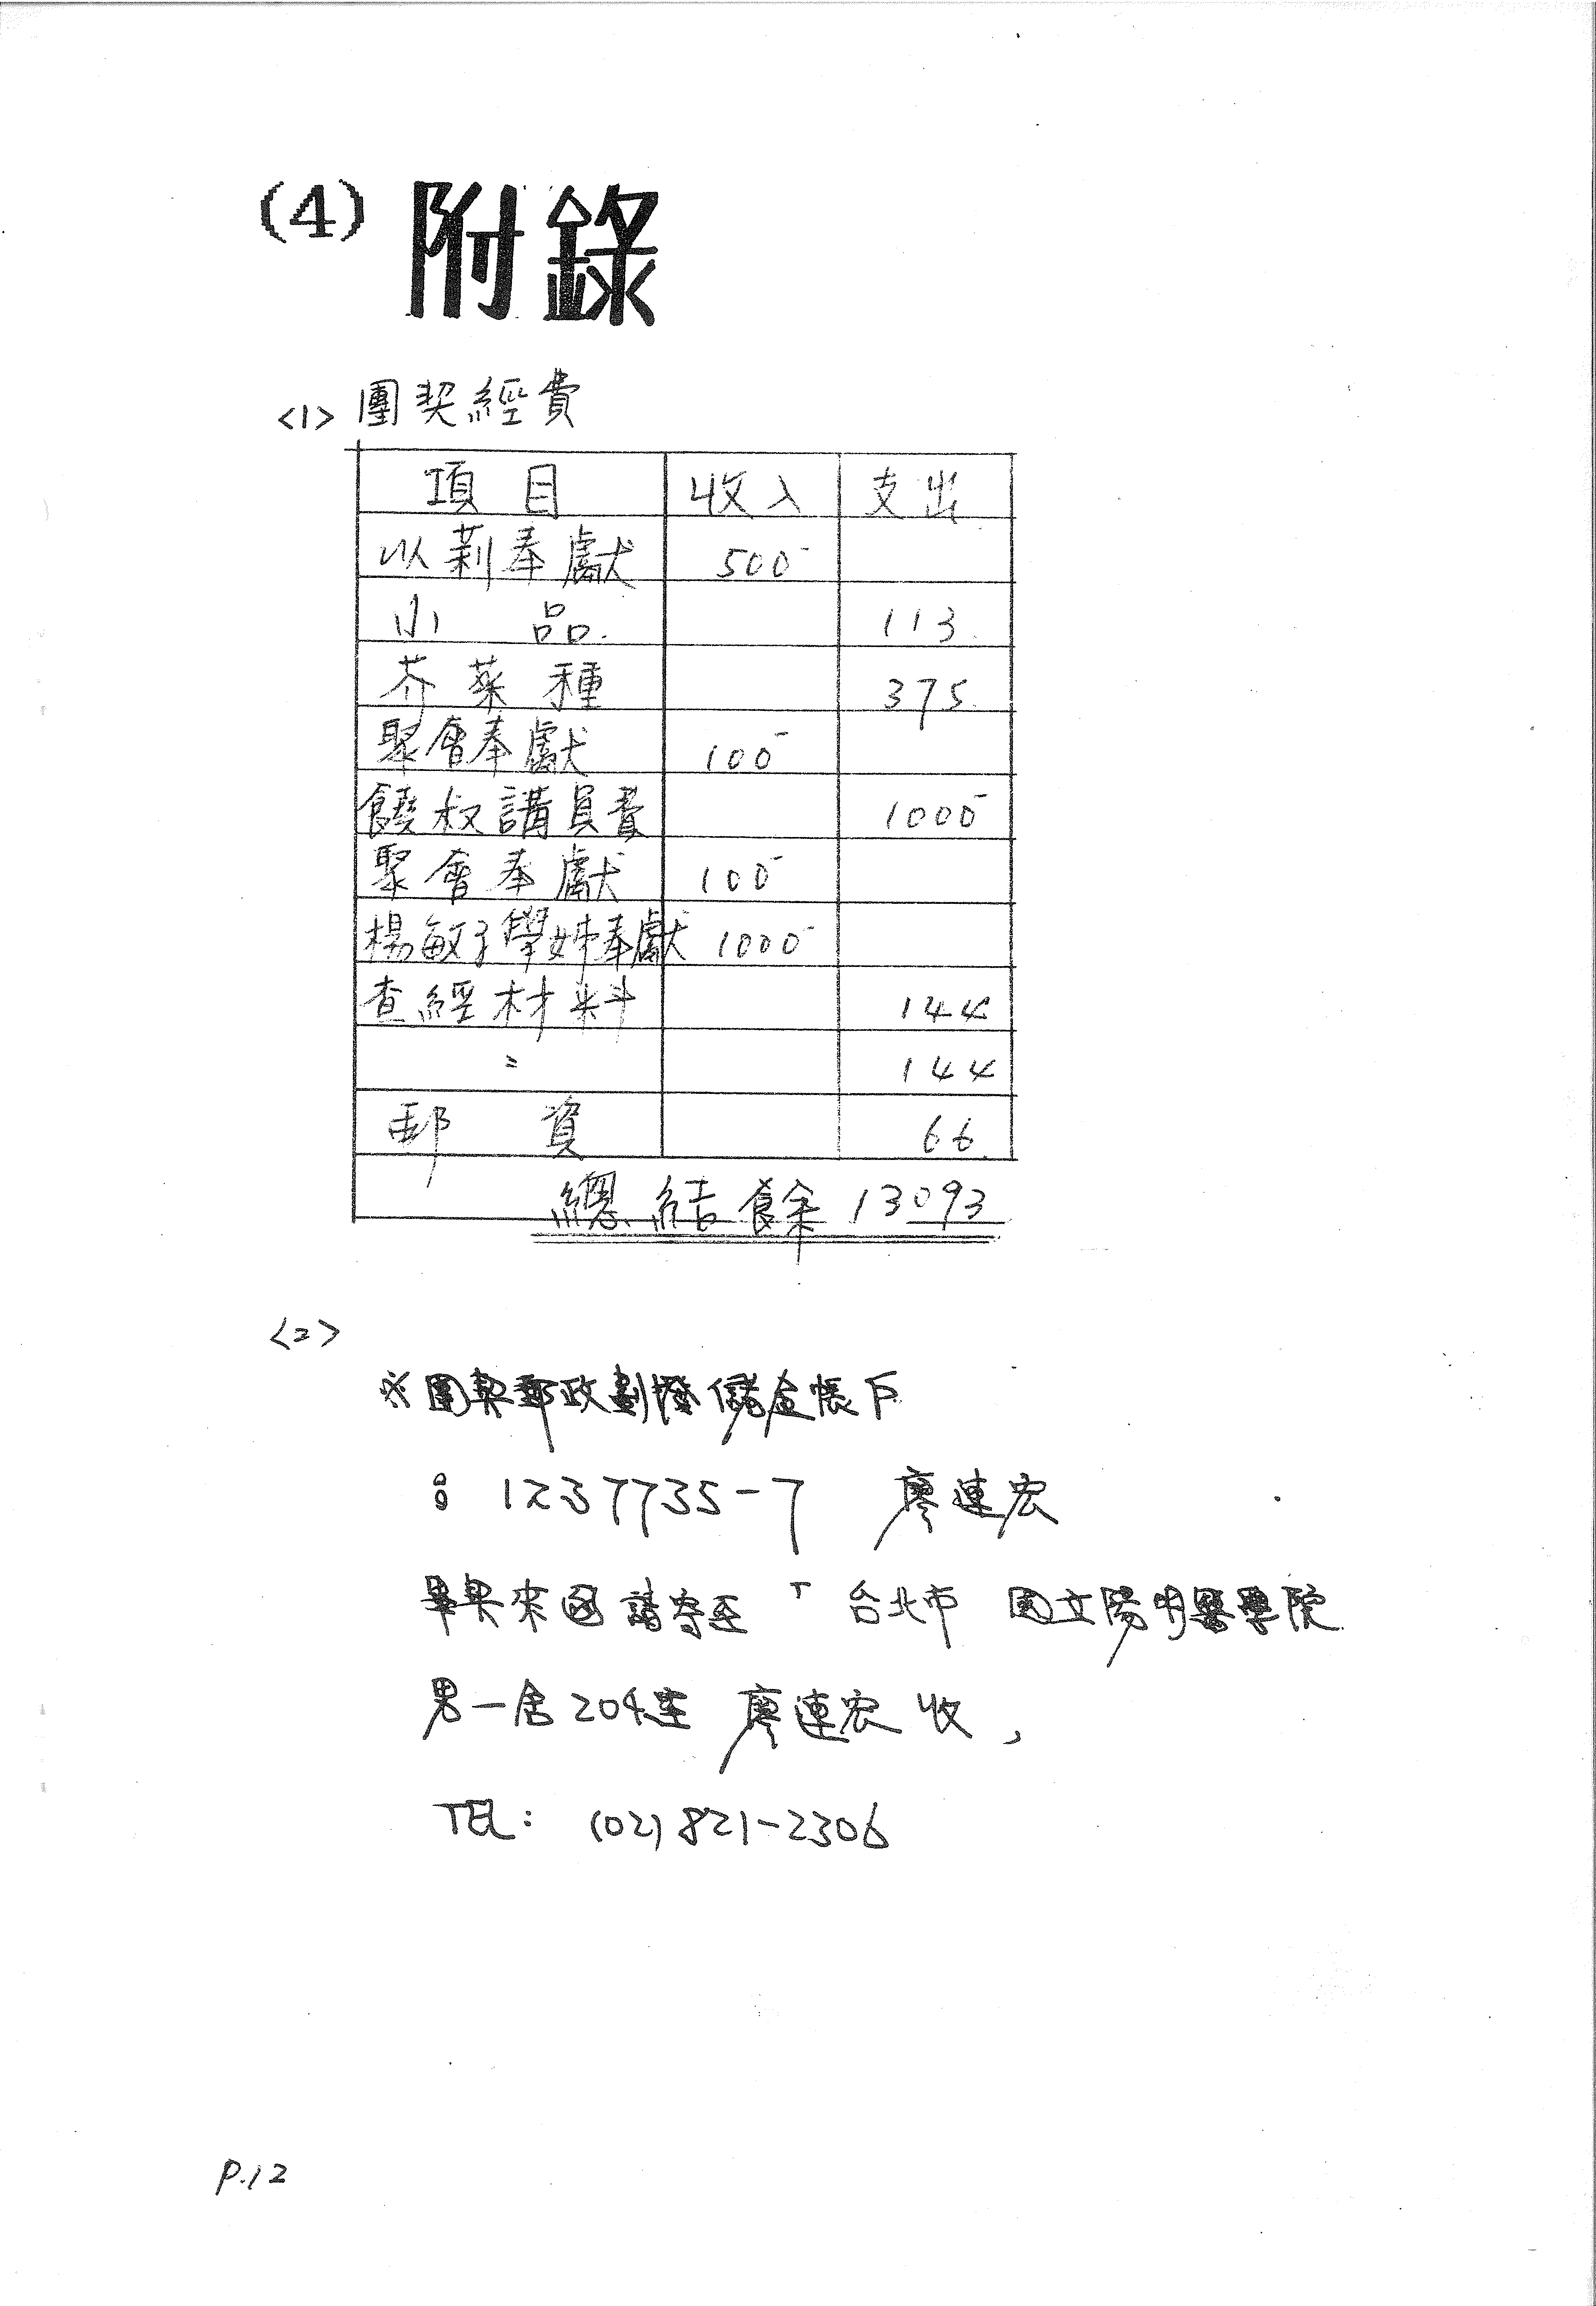 (4) 附錄
<1> 團契經費
項目 收入 支出
以莉奉獻 500
小品 113
芥菜種 375
聚會奉獻 100
饒叔講員費 1000
聚會奉獻 100
楊敏子學姊奉獻 1000
查經材料 144
〃 144
郵資 66
總結餘 13093
<2>
※團契郵政劃撥儲金帳戶
: 1237735-7 廖連宏
畢契來函請寄至「台北市 國立陽明醫學院
男一舍204室 廖連宏 收」
TEL: (02) 821-2306
P.12